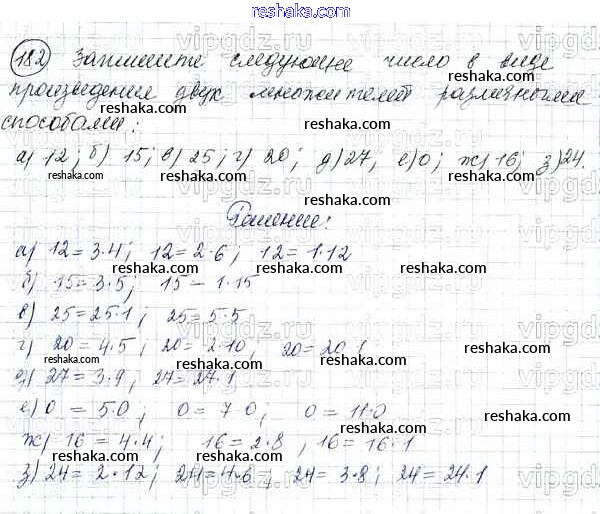 reshaka.com
182 Запишите следующие число в виде
произведения двух множителей различными
способами:
а) 12; б) 15; в) 25; г) 20; д) 27; е) 0; ж) 16; з) 24.
Решение:
а) 12 = 3·4; 12 = 2·6; 12 = 1·12
б) 15 = 3·5; 15 = 1·15
в) 25 = 25·1; 25 = 5·5
г) 20 = 4·5; 20 = 2·10, 20 = 20·1
д) 27 = 3·9; 27 = 27·1
е) 0 = 5·0; 0 = 7·0; 0 = 11·0
ж) 16 = 4·4; 16 = 2·8, 16 = 16·1
з) 24 = 2·12; 24 = 4·6; 24 = 3·8; 24 = 24·1
reshaka.com
vipgdz.ru